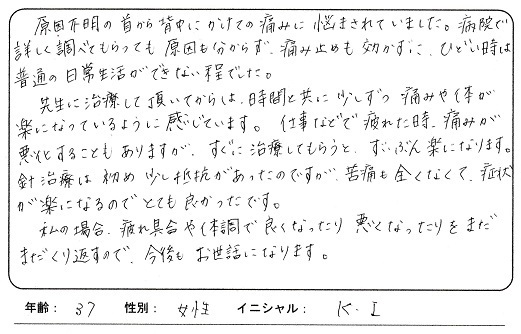 原因不明の首から背中にかけての痛みに悩まされていました。病院で
詳しく調べてもらっても原因も分からず、痛み止めも効かずに、ひどい時は
普通の日常生活ができない程でした。
先生に治療して頂いてからは、時間と共に少しずつ痛みや体が
楽になっているように感じています。仕事などで疲れた時、痛みが
悪化することもありますが、すぐに治療してもらうと、ずいぶん楽になります。
針治療は初め少し抵抗があったのですが、苦痛も全くなくて、症状
が楽になるのでとても良かったです。
私の場合、疲れ具合や体調で良くなったり悪くなったりをまだ
まだくり返すので、今後もお世話になります。
年齢： 37 性別： 女性 イニシャル： K・I